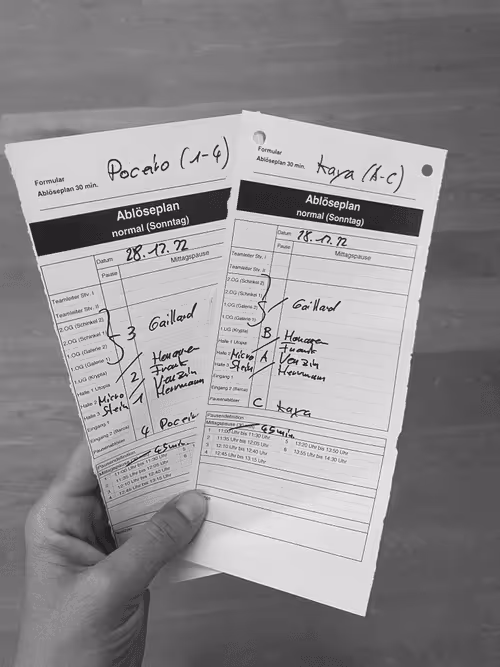 Formular
Ablöseplan 30 min.
Ablöseplan
normal (Sonntag)
Datum 28.12.22
Pause Mittagspause
Teamleiter Stv. I
Teamleiter Stv. II
2.OG (Schinkel 2)
2.OG (Schinkel 1)
1.OG (Galerie 2)
1.OG (Galerie 1)
3 Gaillard
1.UG (Krypta)
Halle 1 Utopia 2
Halle 2 Micro
Halle 3 Stein 1
Eingang 1
Eingang 2 (Barius)
Pausenablöser 4
Frank
Venzin
Herrmann
Pausendefinition
Mittagspause 45 min.
1 11:00 Uhr bis 11:30 Uhr 5
2 11:35 Uhr bis 12:05 Uhr 6
3 12:10 Uhr bis 12:40 Uhr
4 12:45 Uhr bis 13:15 Uhr
Formular
Ablöseplan 30 min.
Kaya (A-C)
Ablöseplan
normal (Sonntag)
Datum 28.12.22
Pause Mittagspause
Teamleiter Stv. I
Teamleiter Stv. II
2.OG (Schinkel 2)
2.OG (Schinkel 1)
1.OG (Galerie 2)
1.OG (Galerie 1)
Gaillard
1.UG (Krypta) B
Halle 1 Utopia
Halle 2 Micro A
Halle 3 Stein
Eingang 1
Frank
Venzin
Herrmann
Pausenablöser C Kaya
Pausendefinition
Mittagspause 45 min.
1 11:00 Uhr bis 11:30 Uhr
2 11:35 Uhr bis 12:05 Uhr
3 12:10 Uhr bis 12:40 Uhr
4 12:45 Uhr bis 13:15 Uhr
5 13:20 Uhr bis 13:50 Uhr
6 13:55 Uhr bis 14:30 Uhr